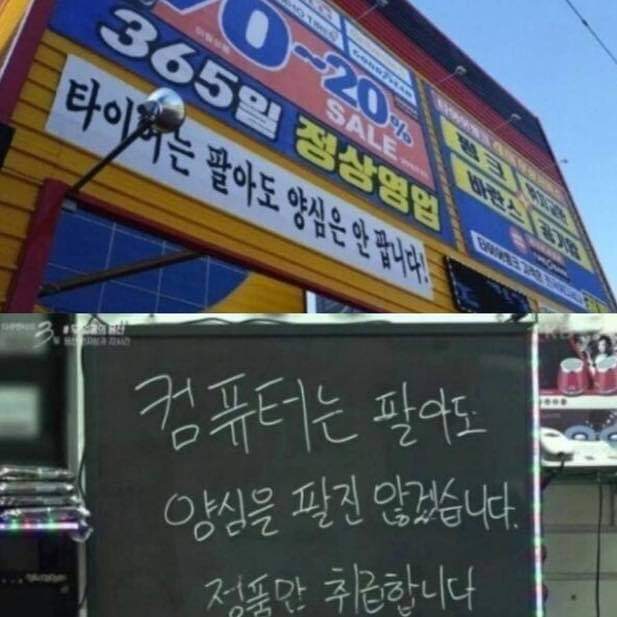 70~20%
SALE
365일 정상영업
타이어는 팔아도 양심은 안 팝니다!
GOODYEAR
펑크
위치교환
바란스
공기압
컴퓨터는 팔아도
양심을 팔진 않겠습니다.
정품만 취급합니다